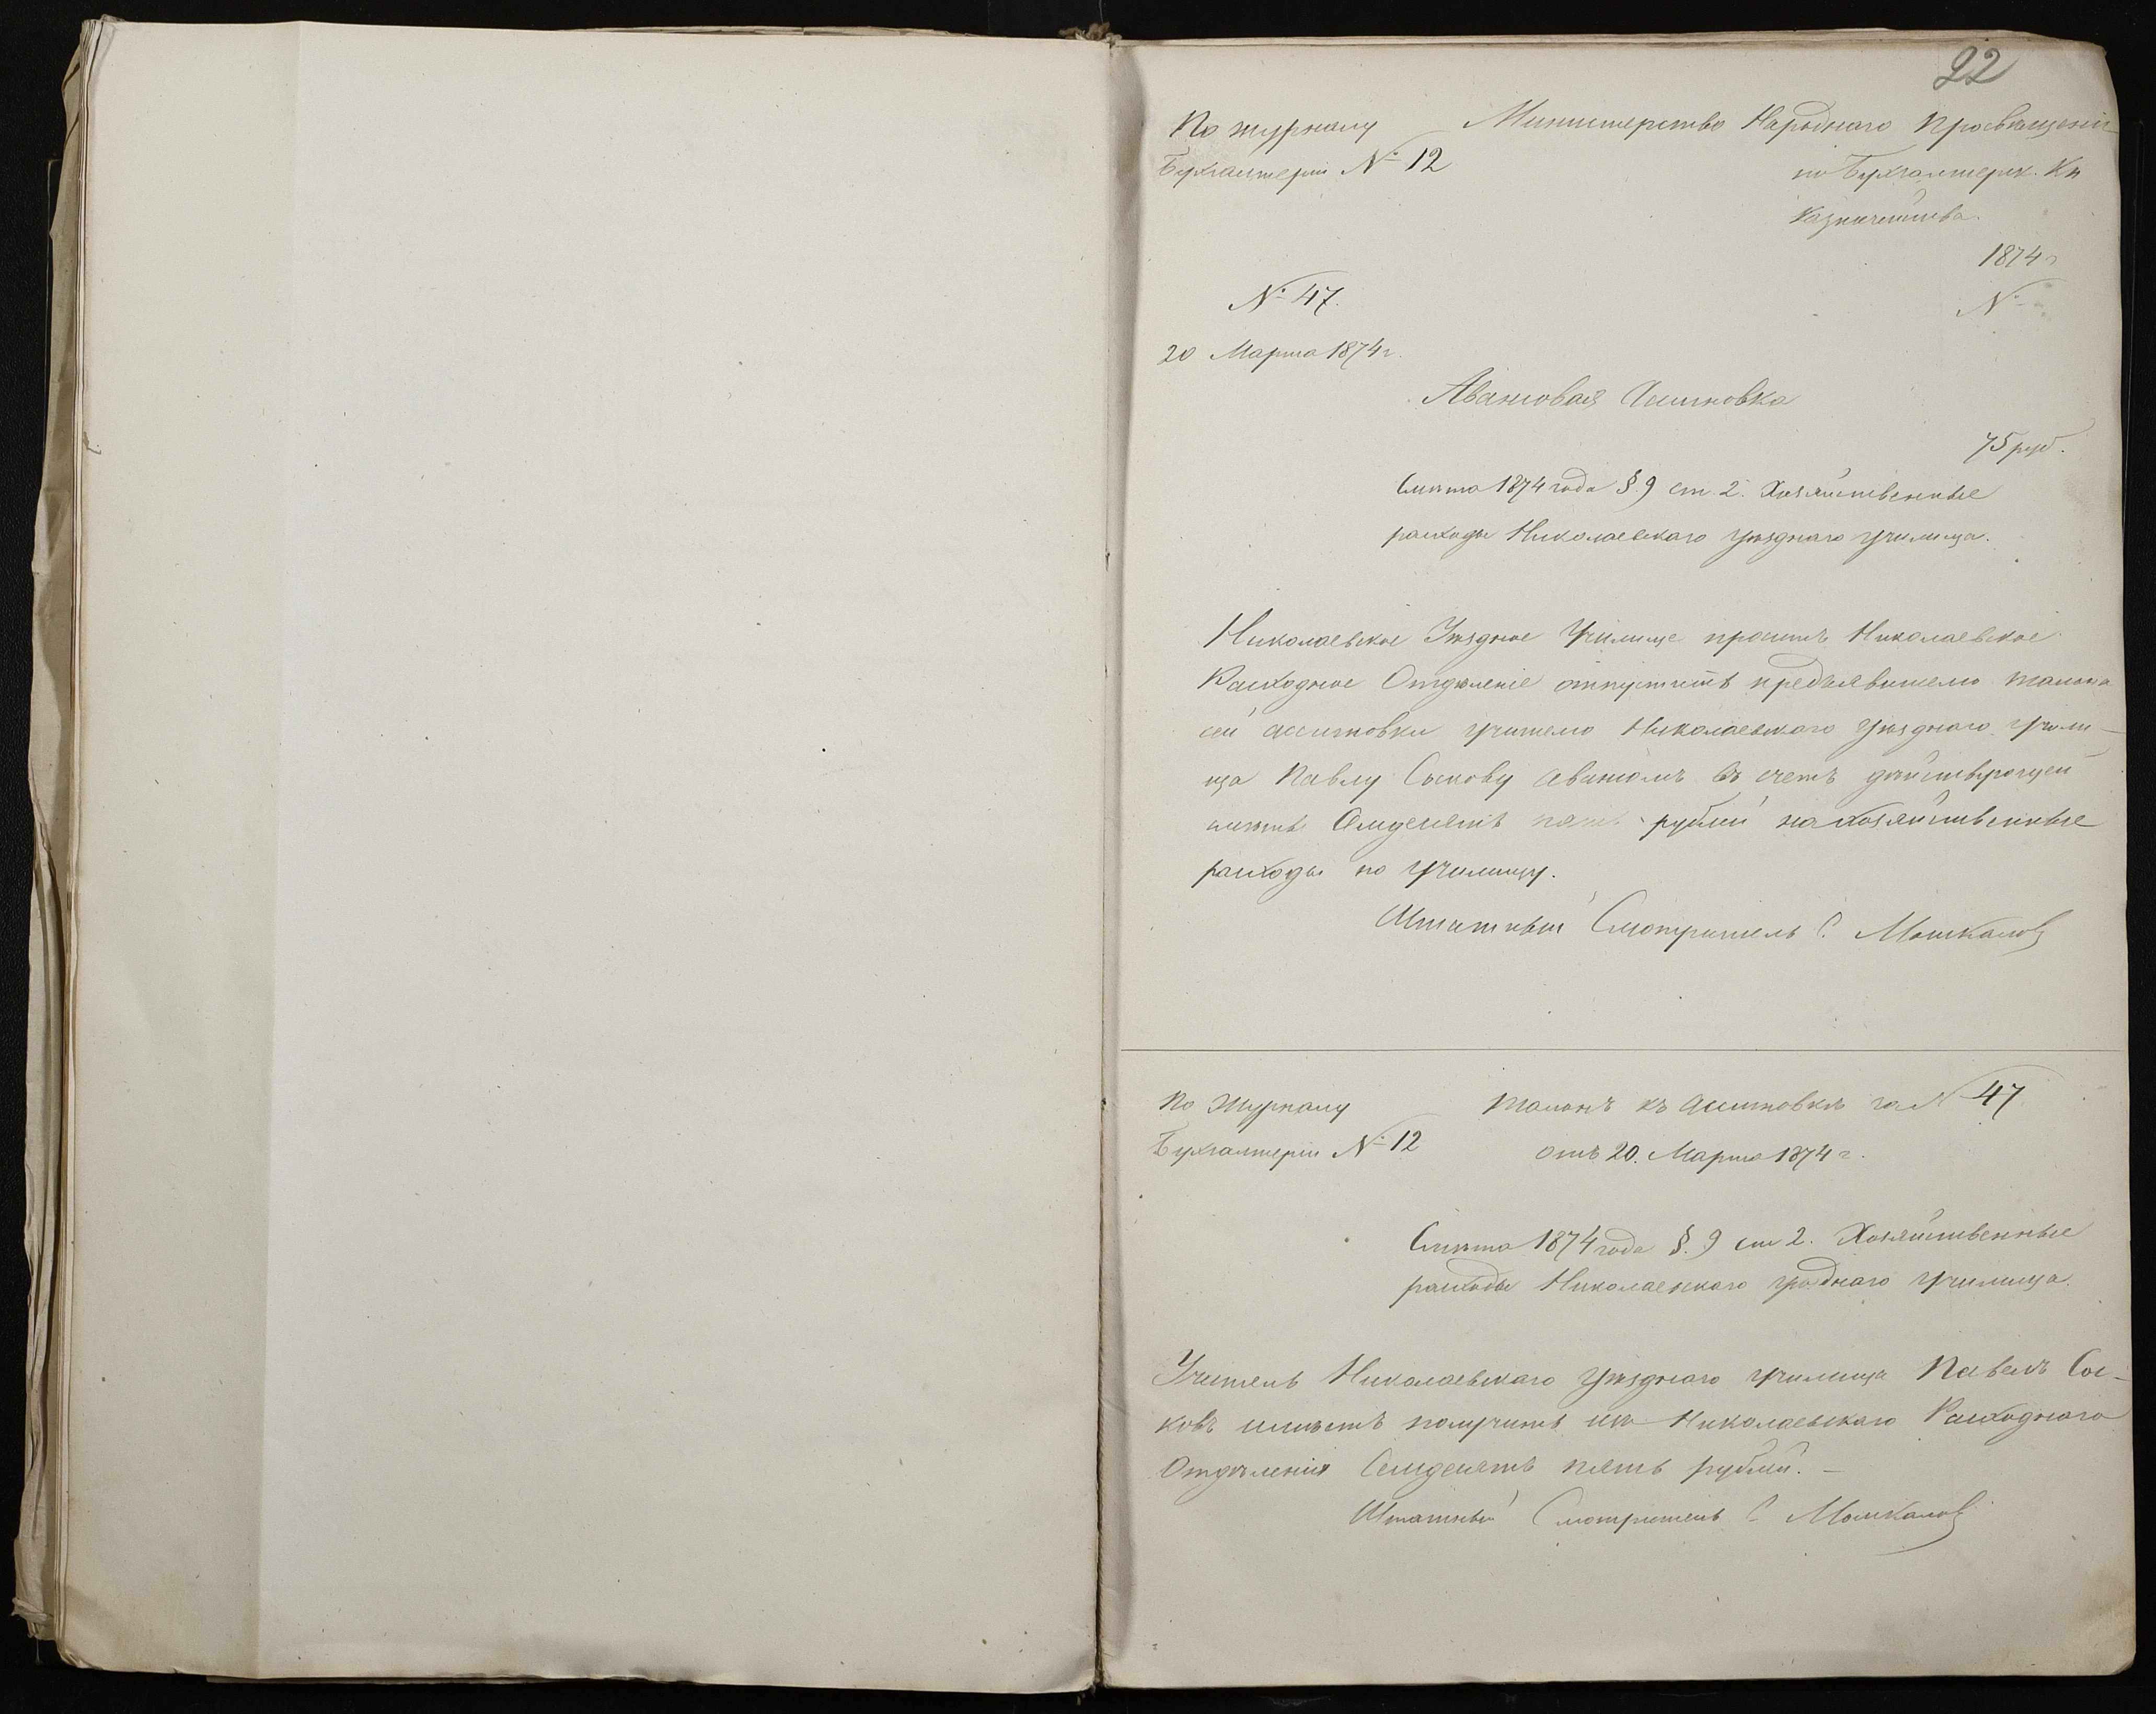 22
По журналу
Бухгалтеріи № 12
Министерство Народнаго Просвѣщенія
по Бухгалтерск. Кн
Казначейства.
1874 г
№
№ 47.
20 Марта 1874 г.
Авансовая Ассигновка
75 руб.
Смѣта 1874 года § 9 ст. 2. Хозяйственные
расходы Николаевскаго уѣзднаго училища.
Николаевское Уѣздное Училище проситъ Николаевское
Расходное Отдѣленіе отпустить предъявителю талона
сей ассигновки учителю Николаевскаго уѣзднаго учили-
ща Павлу Соскову авансомъ въ счетъ дѣйствующей
смѣты Семдесятъ пять рублей на хозяйственные
расходы по училищу.
Штатный Смотритель С. Мошкаловъ
По журналу
Бухгалтеріи № 12
Талонъ къ ассигновкѣ за № 47
отъ 20. Марта 1874 г.
Смѣта 1874 года §. 9 ст 2. Хозяйственные
расходы Николаевскаго уѣзднаго училища.
Учитель Николаевскаго уѣзднаго училища Павелъ Сос-
ковъ имѣетъ получить изъ Николаевскаго Расходнаго
Отдѣленія Семдесятъ пять рублей. —
Штатный Смотритель С Мошкаловъ